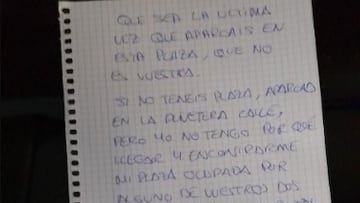 QUE SEA LA ULTIMA
VEZ QUE APARCAIS EN
ESTA PLAZA, QUE NO
ES VUESTRA.
SI NO TENEIS PLAZA, APARCAD
EN LA PUÑETERA CALLE,
PERO YO NO TENGO POR QUÉ
LLEGAR Y ENCONTRARME
MI PLAZA OCUPADA POR
ALGUNO DE VUESTROS DOS